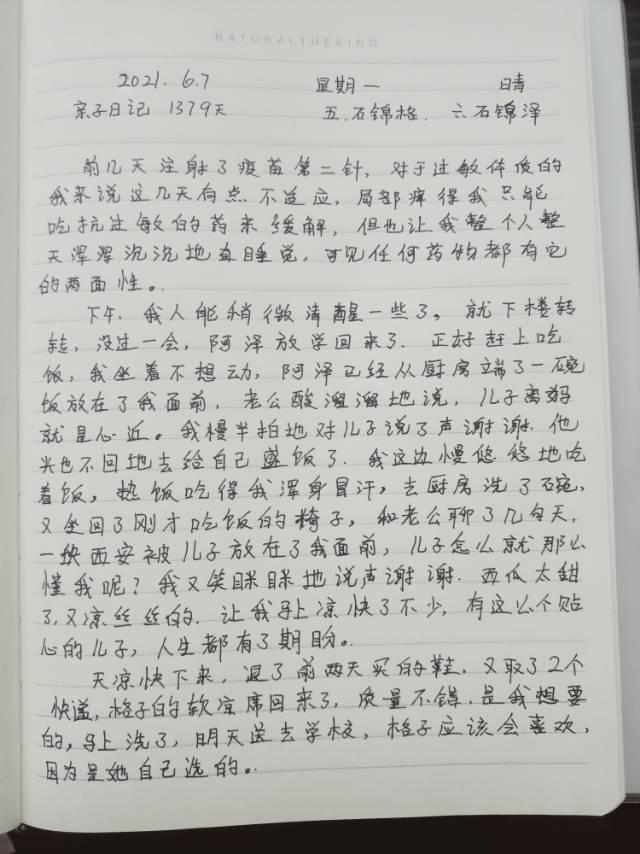 NATURALTHEKING
2021. 6.7 星期一 晴
亲子日记 1379天 五.石锦格. 六石锦泽
前几天注射了疫苗第二针, 对于过敏体质的
我来说这几天有点不适应, 局部痒得我只能
吃抗过敏的药来缓解, 但也让我整个人整
天浑浑沉沉地直睡觉, 可见任何药物都有它
的两面性。
下午, 我人能稍微清醒一些了。就下楼转
转, 没过一会, 阿泽放学回来了. 正好赶上吃
饭, 我坐着不想动, 阿泽已经从厨房端了一碗
饭放在了我面前, 老公酸溜溜地说, 儿子离妈
就是心近。我慢半拍地对儿子说了声谢谢. 他
头也不回地去给自己盛饭了. 我这边慢悠悠地吃
着饭, 热饭吃得我浑身冒汗, 去厨房洗了碗,
又坐回了刚才吃饭的椅子, 和老公聊了几句天,
一块西安被儿子放在了我面前, 儿子怎么就那么
懂我呢? 我又笑眯眯地说声谢谢. 西瓜太甜
了, 又凉丝丝的. 让我马上凉快了不少, 有这么个贴
心的儿子, 人生都有了期盼。
天凉快下来, 退了前两天买的鞋, 又取了2个
快递, 格子的软凉席回来了, 质量不错. 是我想要
的, 马上洗了, 明天送去学校, 格子应该会喜欢,
因为是她自己选的。